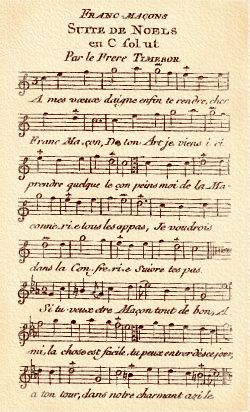 FRANC-MAÇONS
SUITE DE NOELS
en C sol ut
Par le Frere TIMEBOR.
A mes vœux daigne enfin te rendre, cher
Franc Ma,çon, De ton Art je viens i ci
prendre quelque le çon peins moi de la Ma-
conne.ri.e tous les appas, Je voudrois
dans la Con-fre.ri.e Suivre tes pas.
Si tu veux etre Maçon tout de bon, A
mi, la chose est facile, tu peux entrer dès ce jour,
a ton tour, dans notre charmant a zi le